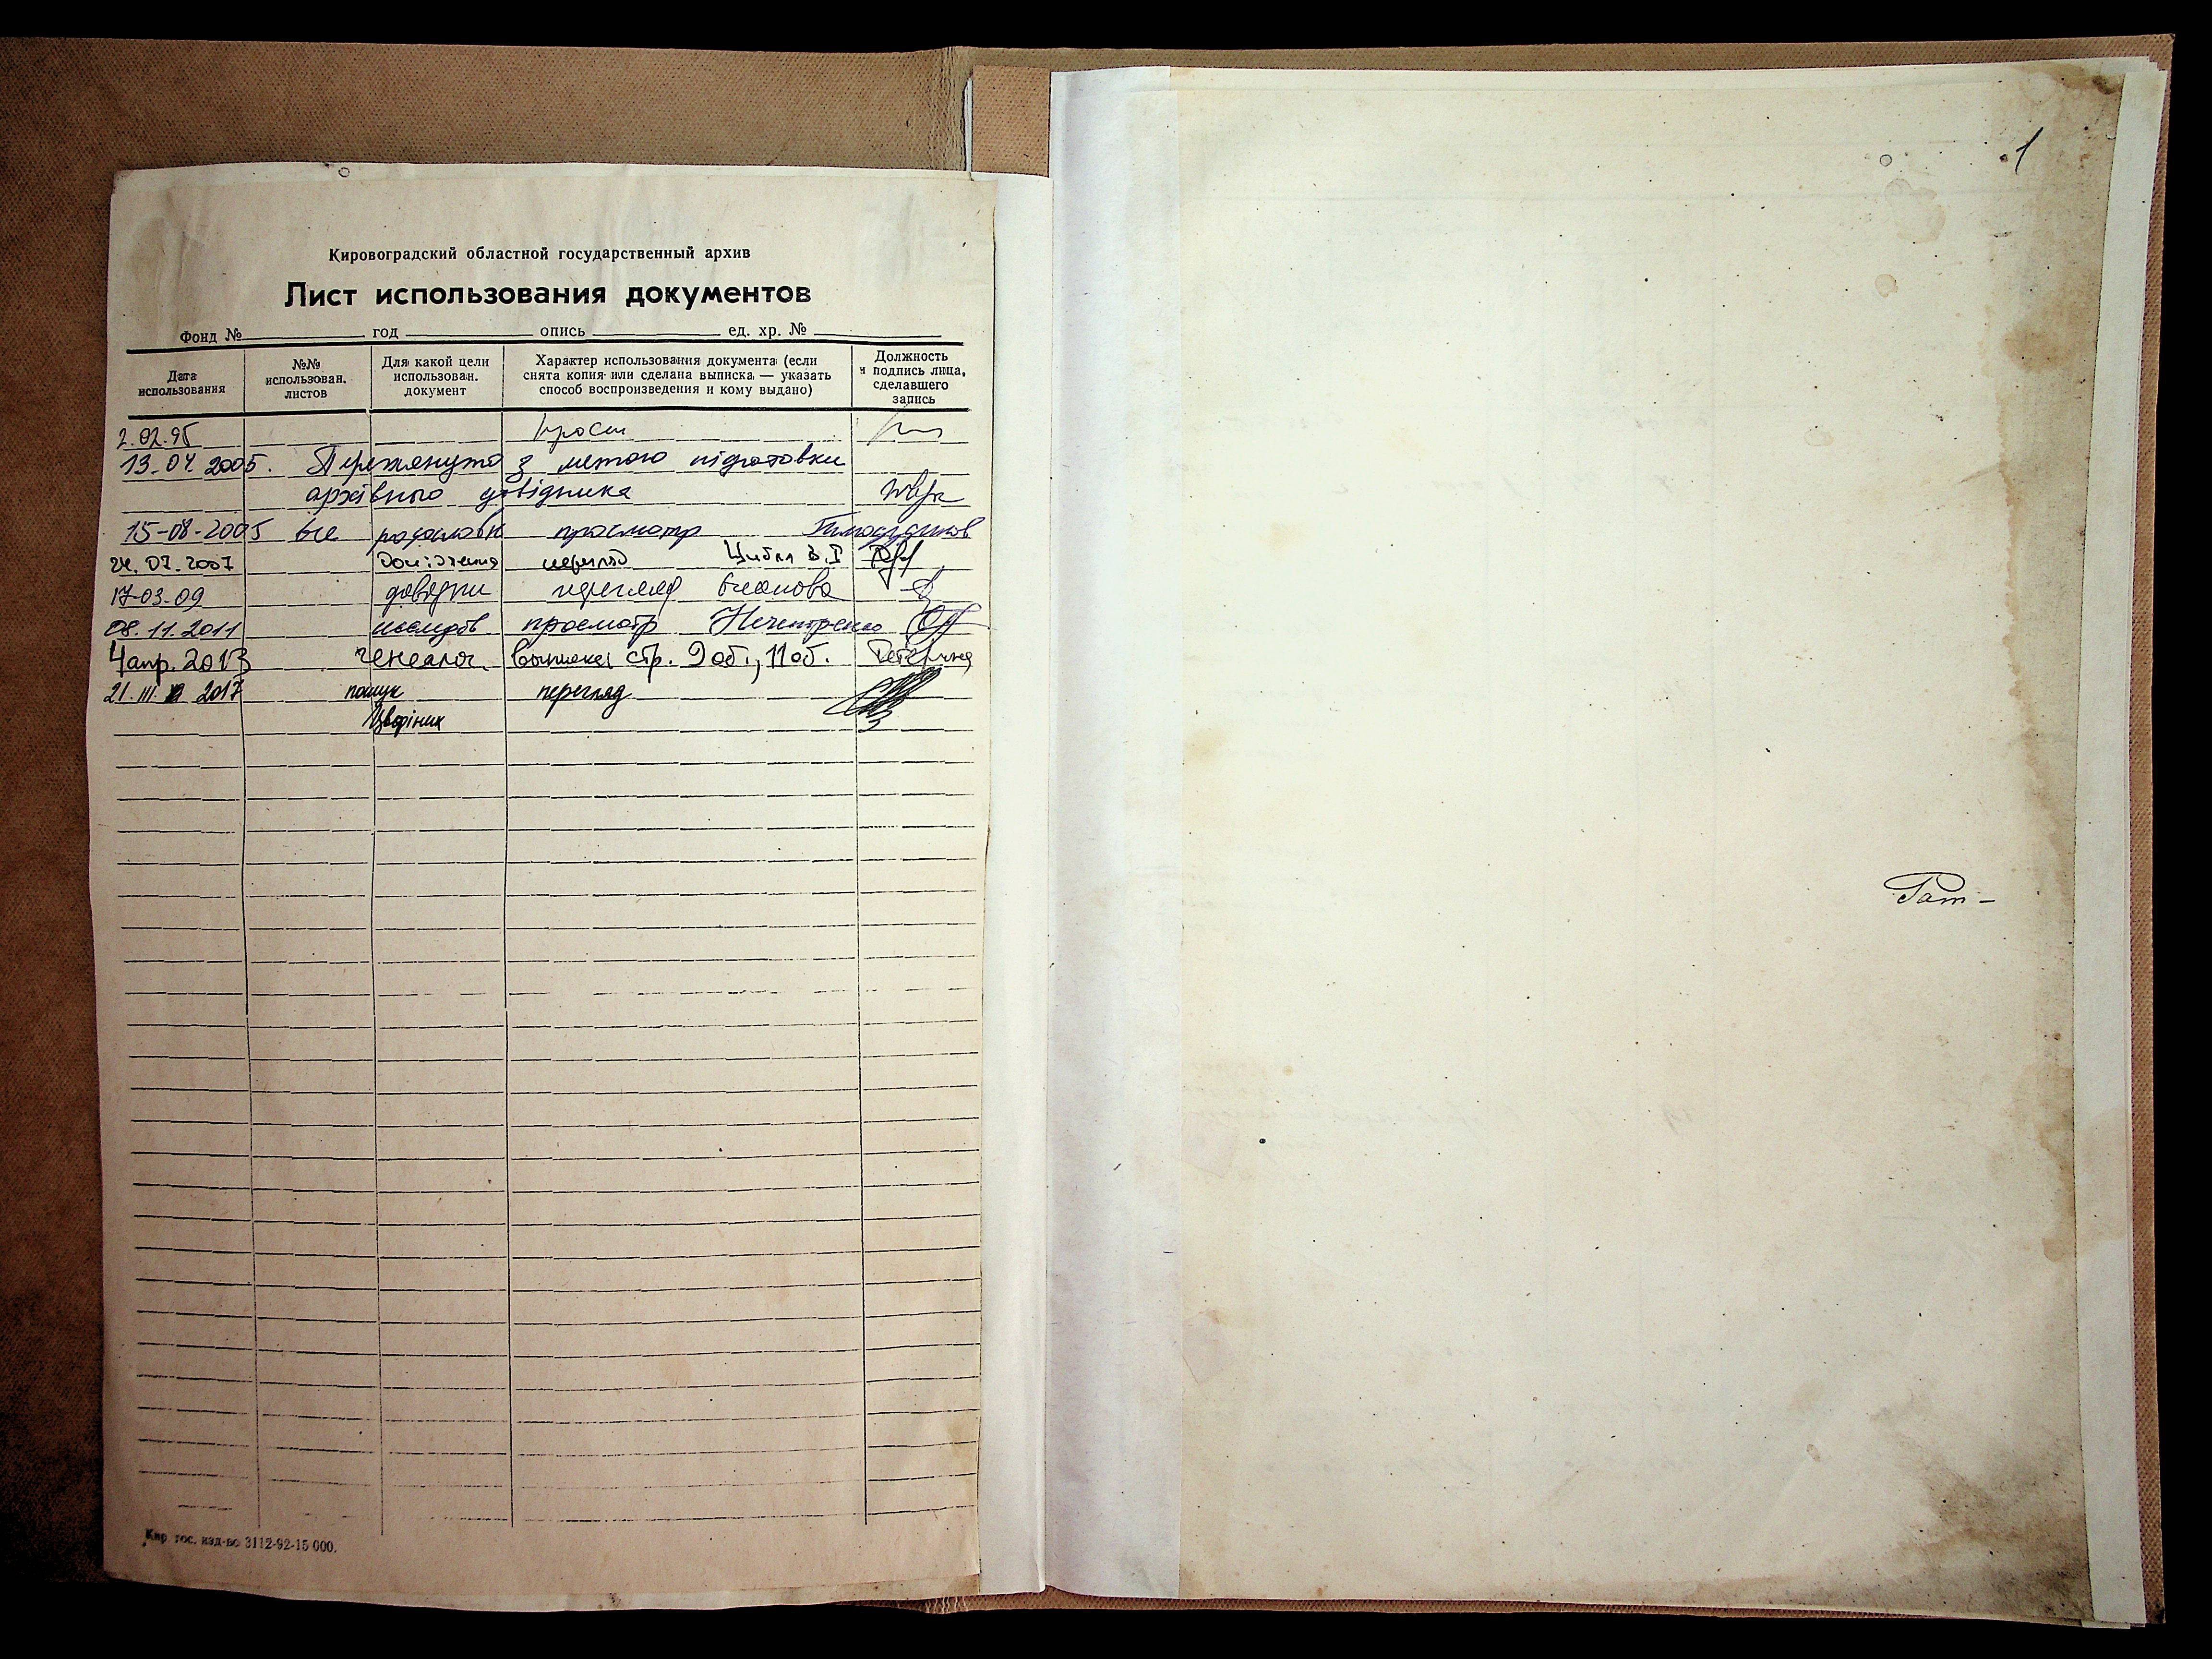 1
Кировоградский областной государственный архив
Лист использования документов
Фонд № год опись ед. хр. №
Дата использования
№№ использован. листов
Для какой цели использован. документ
Характер использования документа (если снята копия или сделана выписка — указать способ воспроизведения и кому выдано)
Должность и подпись лица, сделавшего запись
2.02.95
13-04 2005. Переглянуто з метою підготовки
архівного довідника
15-08-2005 все родословн просмотр
24.07.2007 дослідження перегляд Цибля В.І
17-03-09 довідки перегляд
08.11.2011 исследов просмотр
4 апр. 2013 генеалог. выписка стр. 9 об., 11 об.
21.III. 2017 пошук перегляд
Кир гос. изд-во 3112-92-15 000.